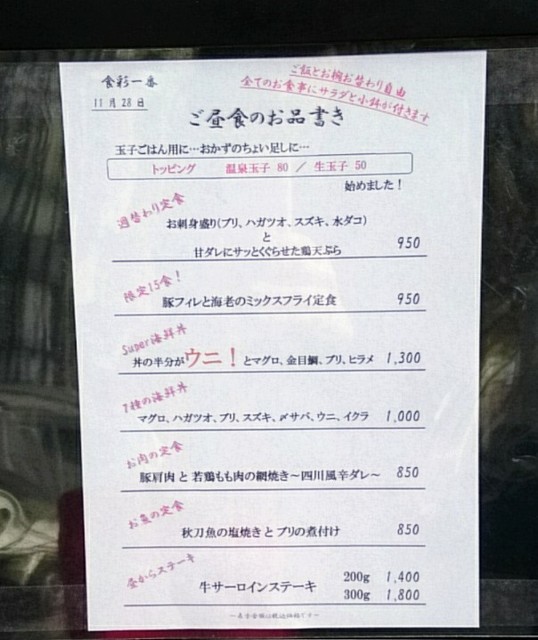 食彩一番
11月28日
ご飯とお椀お替わり自由
全てのお食事にサラダと小鉢が付きます
ご昼食のお品書き
玉子ごはん用に…おかずのちょい足しに…
トッピング 温泉玉子 80 ／ 生玉子 50
始めました！
週替わり定食
お刺身盛り(ブリ、ハガツオ、スズキ、水ダコ)
と
甘ダレにサッとくぐらせた鶏天ぷら 950
限定15食！
豚フィレと海老のミックスフライ定食 950
Super海鮮丼
丼の半分がウニ！とマグロ、金目鯛、ブリ、ヒラメ 1,300
7種の海鮮丼
マグロ、ハガツオ、ブリ、スズキ、〆サバ、ウニ、イクラ 1,000
お肉の定食
豚肩肉 と 若鶏もも肉の網焼き～四川風辛ダレ～ 850
お魚の定食
秋刀魚の塩焼き と ブリの煮付け 850
昼からステーキ
牛サーロインステーキ 200g 1,400
300g 1,800
～表示金額は税込価格です～